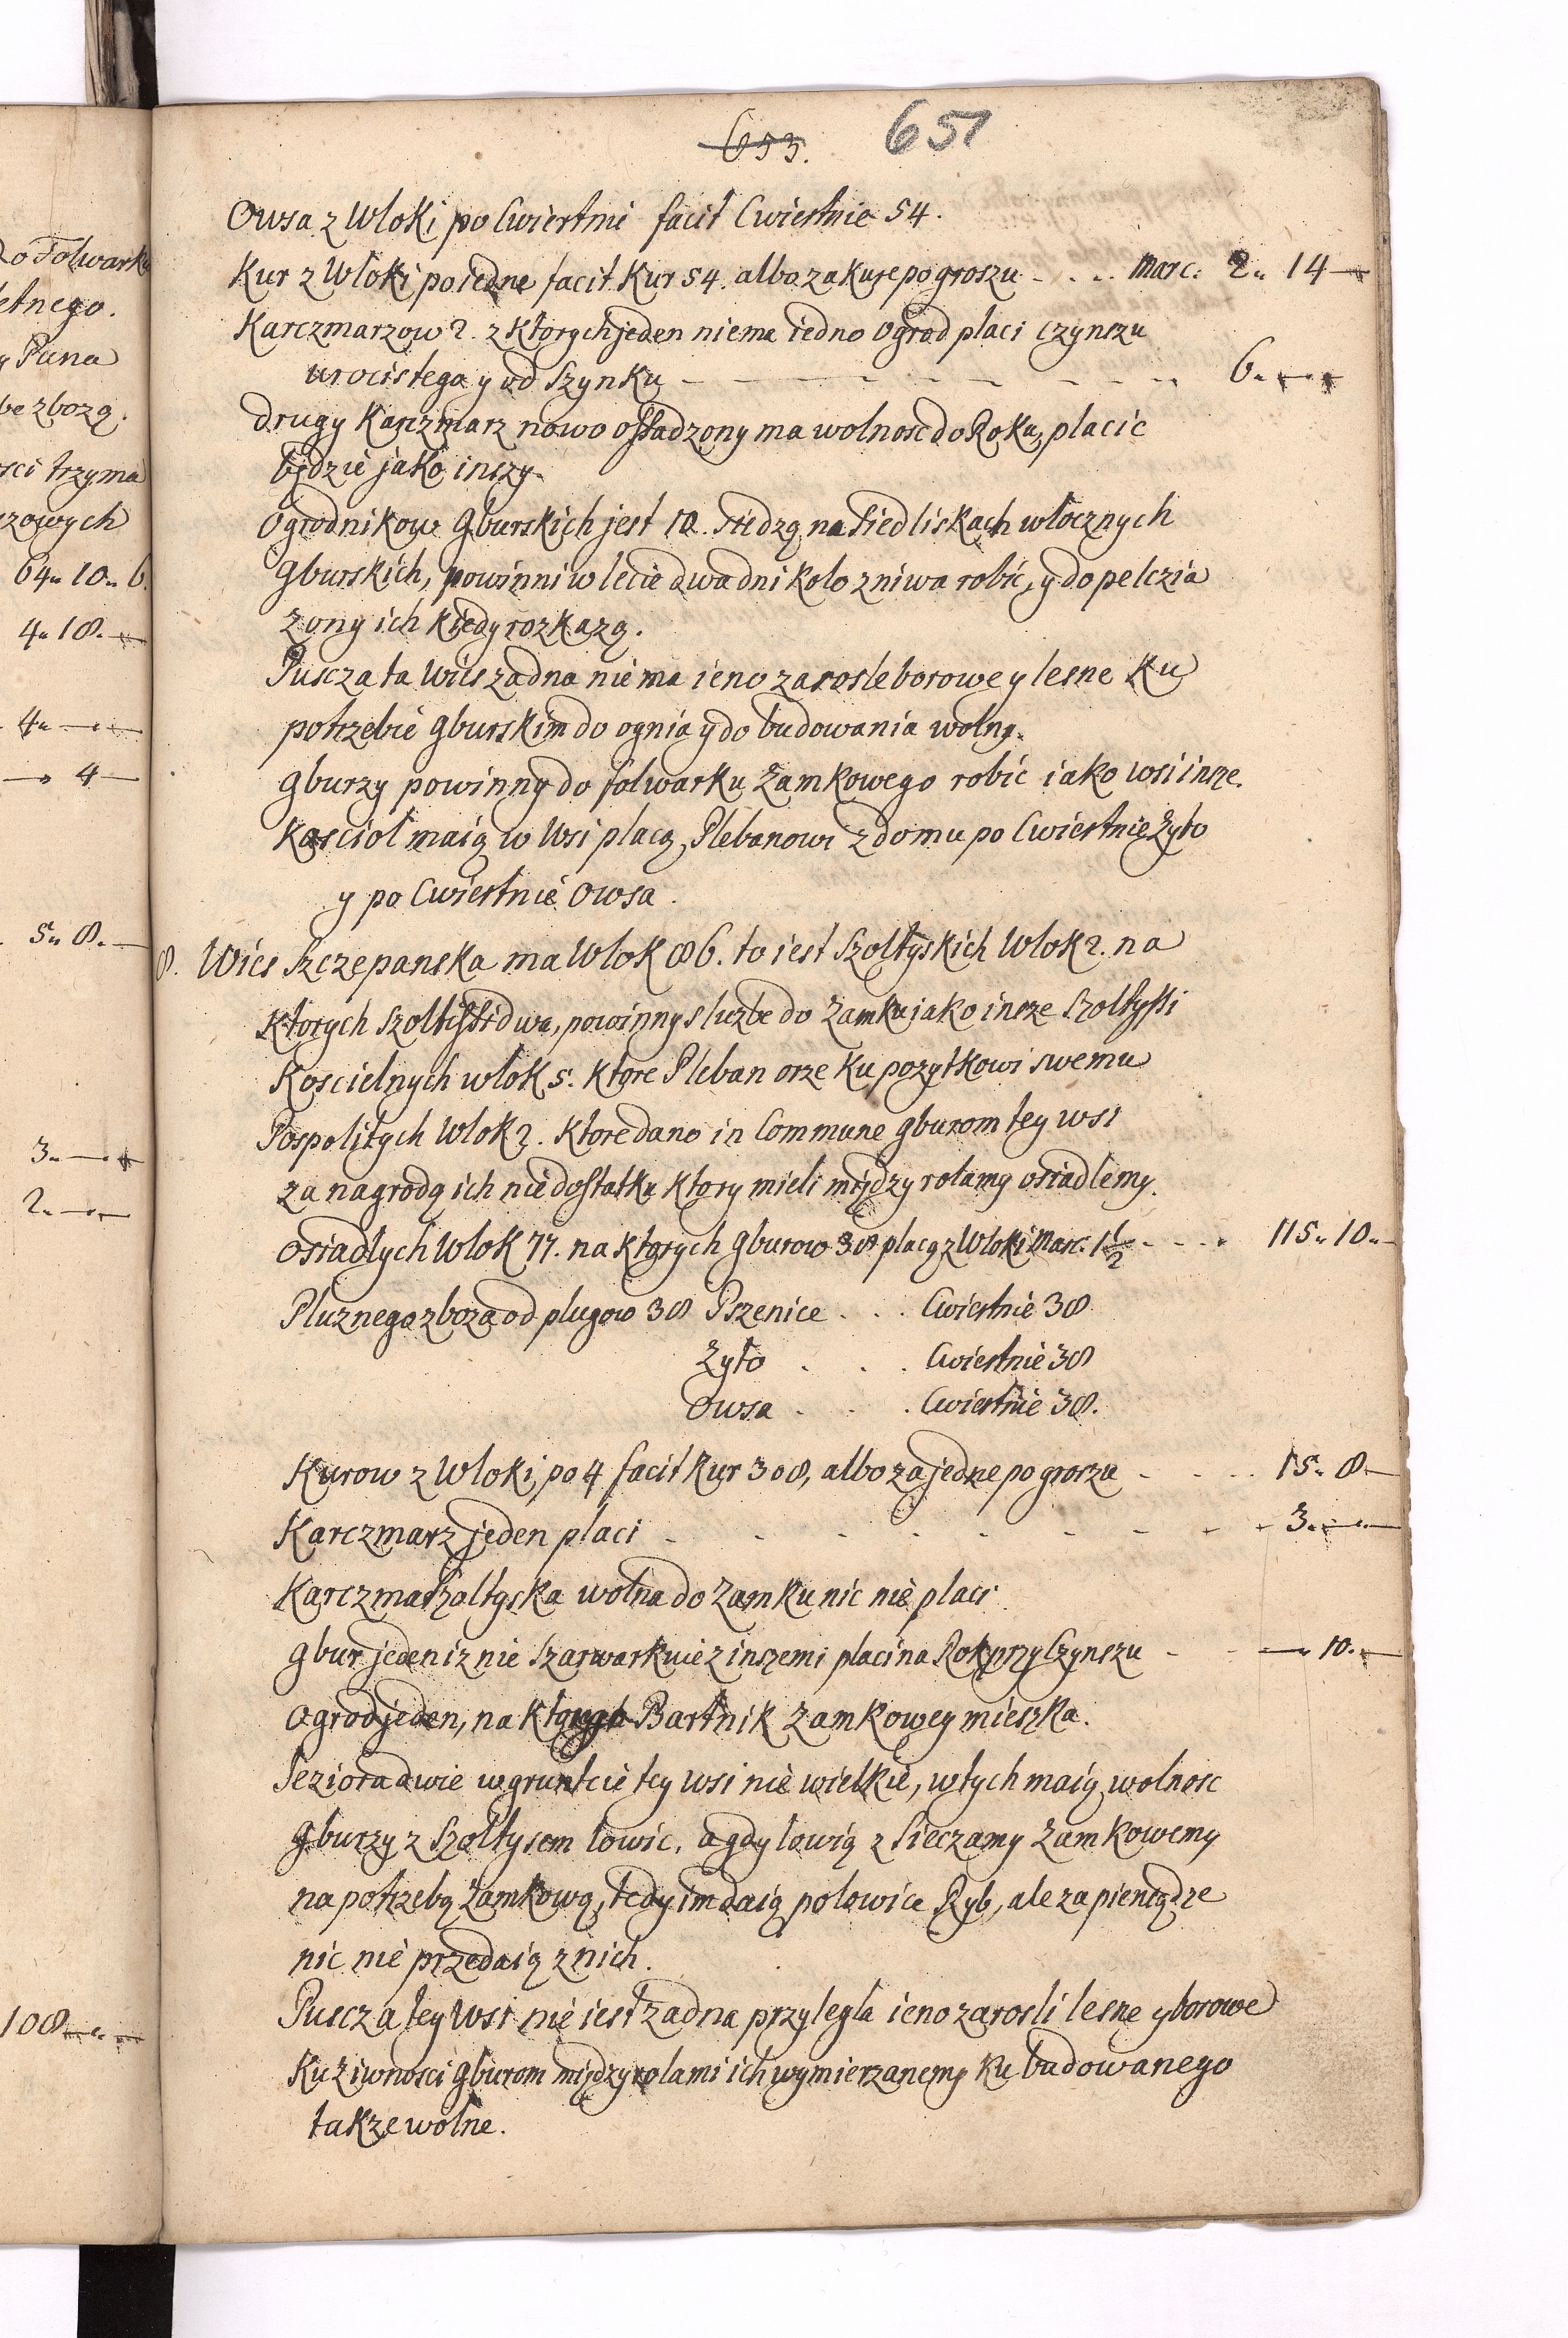 653.
651
Owsa z Wloki po Cwiertni facit Cwiertnie 54.
Kur z Wloki po iedne facit Kur 54. albo za Kure po groszu - . . . Marc: 2„ 14—
Karczmarzow 2. z Ktorych jeden niema iedno Ogrod placi Czynszu
urocistego y od Szynku - — — — — — 6„ —„—
drugy Karczmarz nowo ossadzony ma wolnosc do Roku, placic
będzie jako inszy.
Ogrodnikow Gburskich jest 10. siedzą na siedliskach wlocznych
Gburskich, powinni w lecie dwa dni kolo zniwa robic, y do pelczia
zony ich kiedy rozkazą.
Puscza ta Wies zadna nie ma ieno zarosle borowe y lesne Ku
potrzebie gburskim do ognia y do budowania wolny.
Gburzy powinny do folwarku Zamkowego robic iako wsi insze.
Kosciol maią w Wsi placą Plebanowi z domu po Cwiertnie Zyto
y po Cwiertnie Owsa.
8. Wies Szczepanska ma Wlok 86. to iest Szoltyskich Wlok 2. na
Ktorych Szoltissi dwa, powinny sluzbe do Zamku jako insze Szoltyssi
Koscielnych wlok 5. Ktore Pleban orze Ku pozytkowi swemu
Pospolitych Wlok 2. Ktore dano in Commune gburom tey wsi
za nagrodą ich niedostatku Ktory mieli między rolamy osiadlemy.
Osiadlych Wlok 77. na Ktorych Gburow 38 placą z Wloki Marc. 1½ - - - - 115„ 10„—
Pluznego zboza od plugow 38 Pszenice . . . Cwiertnie 38
Zyto . . . Cwiertnie 38
Owsa . . . Cwiertnie 38.
Kurow z Wloki, po 4 facit Kur 308, albo za jedne po groszu - - - . . 15„ 8.—
Karczmarz jeden placi - - - - - - - - 3„—„—
Karczma Szoltyska wolna do Zamku nic nie placi
Gbur jeden iz nie Szarwarkuie z inszemi placi na Rok przy Czynszu - — 10.—
Ogrod jeden, na Ktorego Bartnik Zamkowey mieszka.
Jeziora dwie w gruntcie tey wsi nie wielkie, w tych maią wolnosc
Gburzy z Szoltysem lowic, a gdy lowią z Sieczamy Zamkowemy
na potrzebą Zamkową, tedy im daią polowice Ryb, ale za pieniądze
nic nie przedaią z nich.
Puscza tey Wsi nie iest zadna przylegla ieno zarosli lesne y borowe
Ku ziwnosci Gburom między rolami ich wymierzanemy Ku budowanego
takze wolne.
do Folwarku
letnego.
y Pana
be zbozą.
sci trzyma
zowych
64„ 10„ 6.
4„ 18.—
4„—„—
— 4—
5„ 8.—
3„—„—
2„—„—
108„—„—